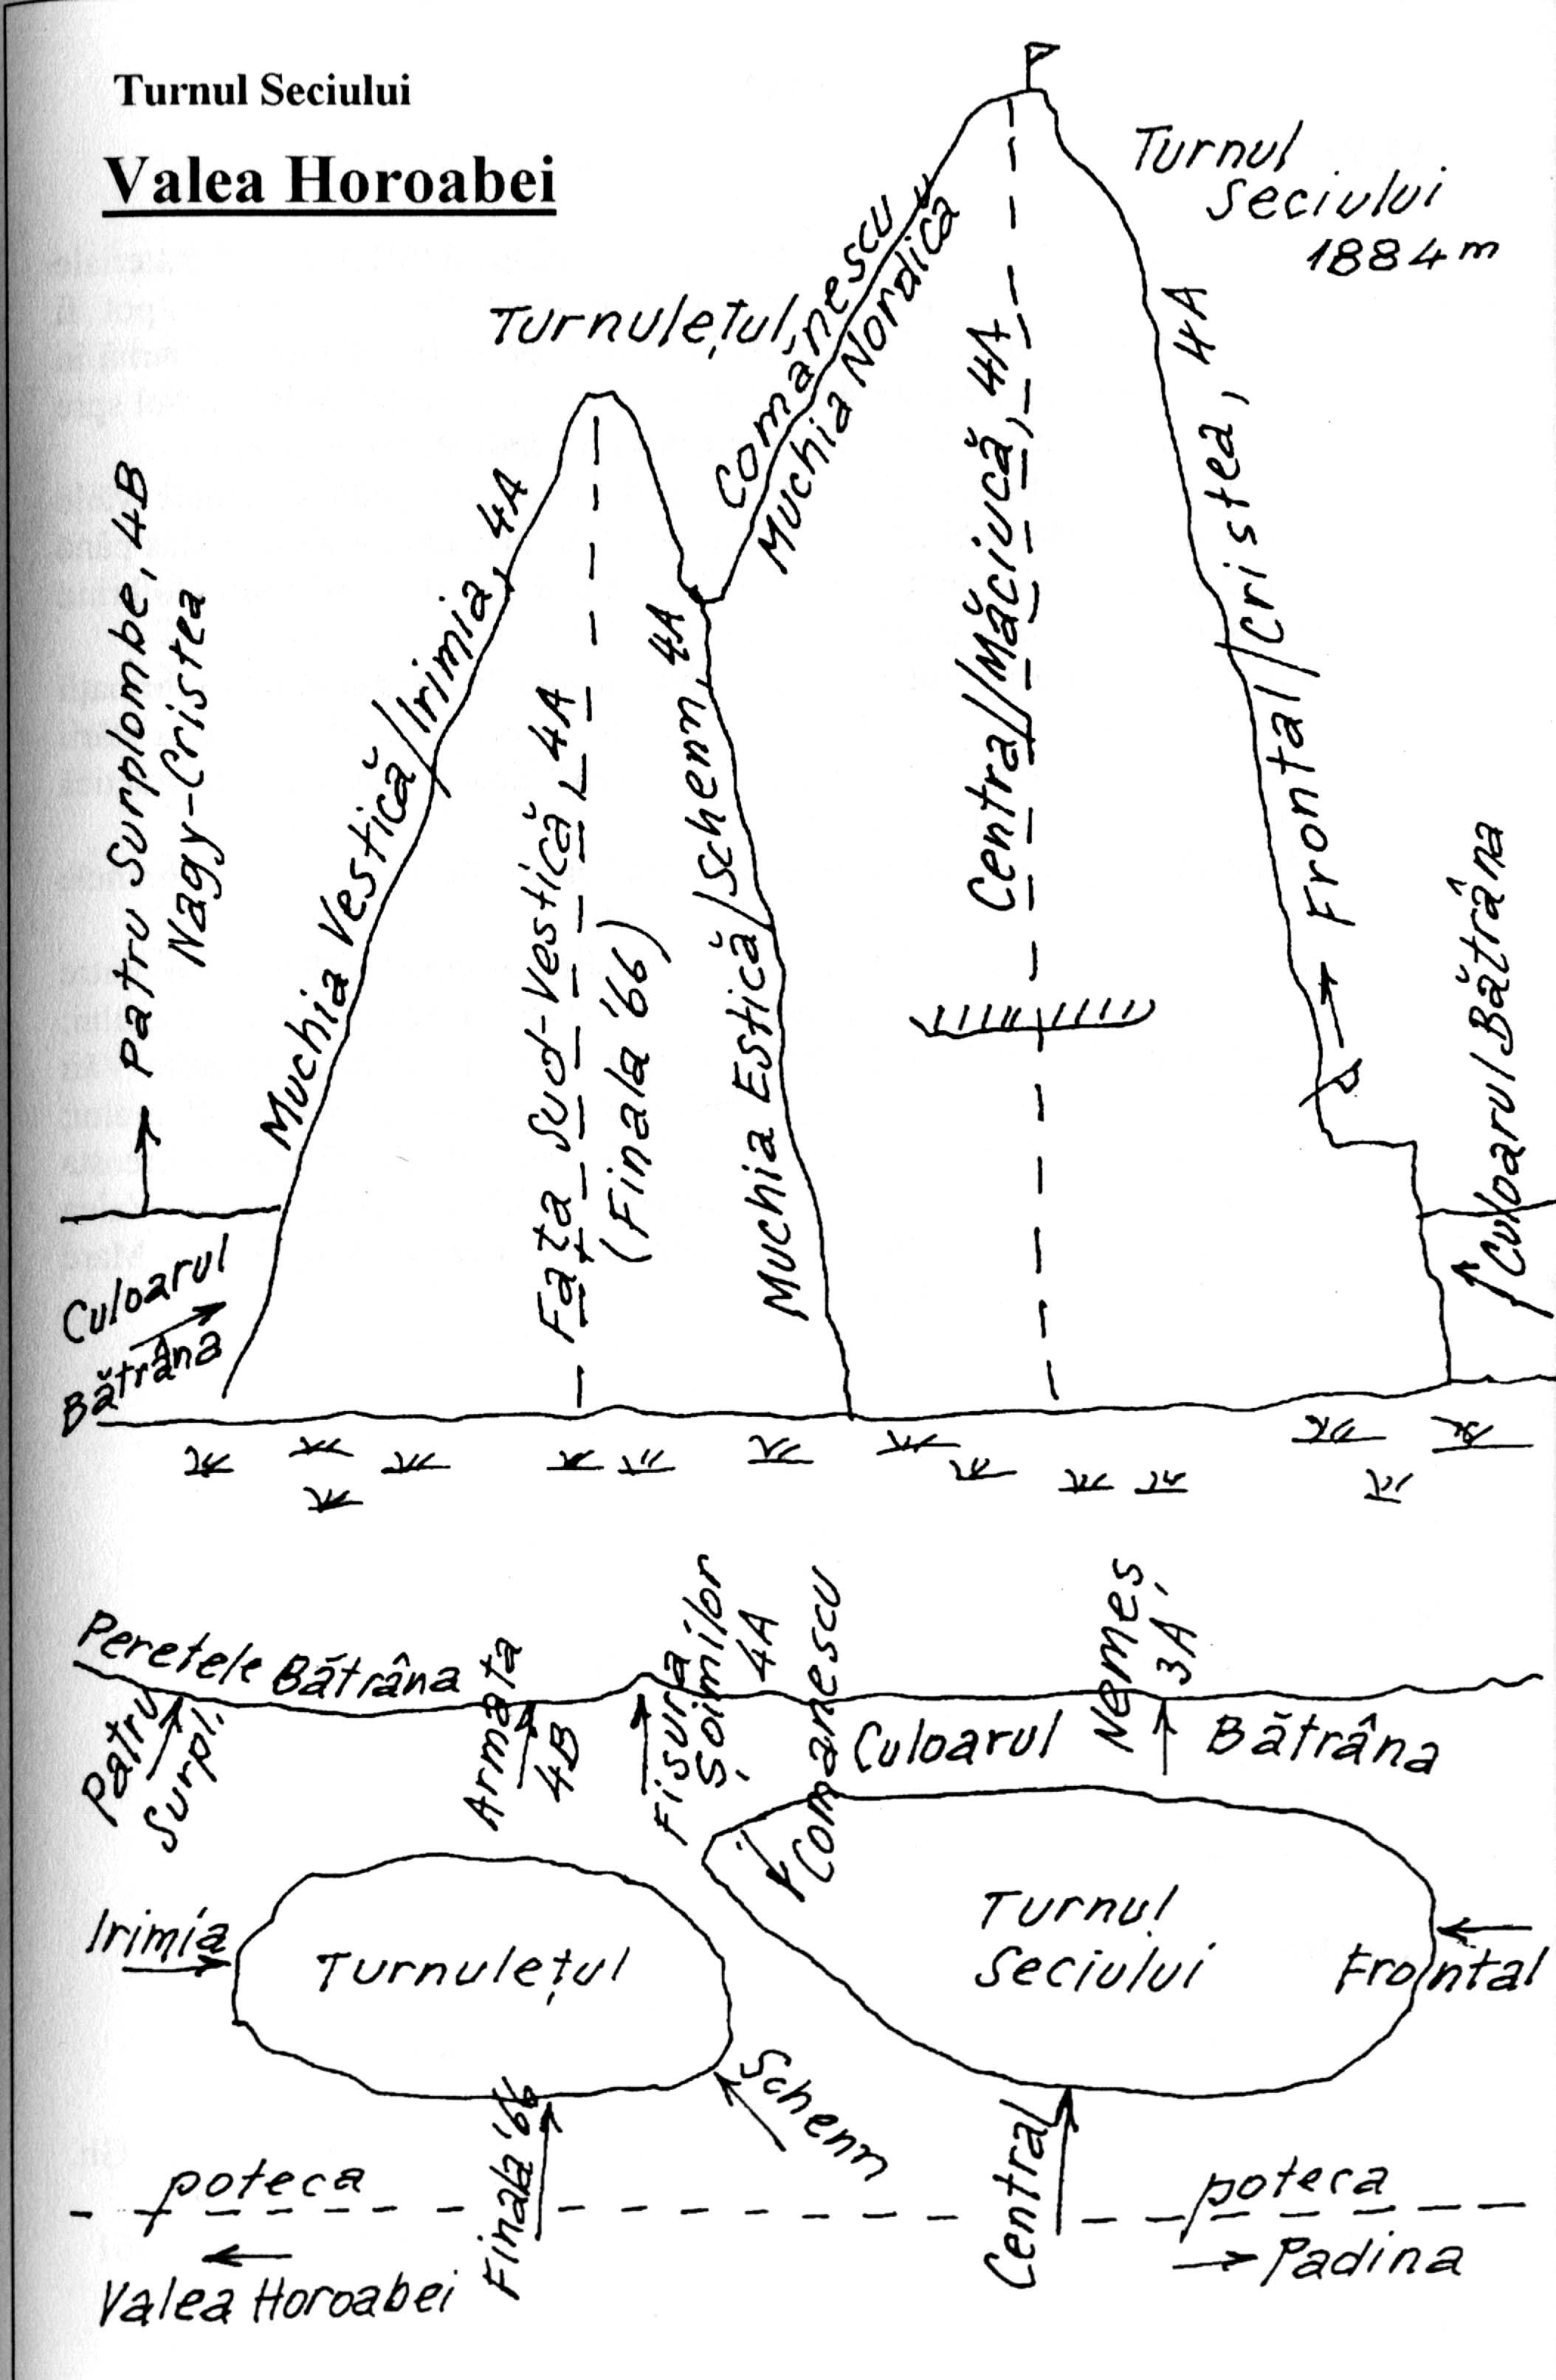 Turnul Seciului
Valea Horoabei
Turnul
Seciului
1884 m
Turnulețul
Comănescu
Muchia Nordică
Patru Surplombe, 4B
Nagy-Cristea
Muchia Vestică/Irimia, 4A
Fața Sud-Vestică, 4A
(Finala '66)
Muchia Estică/Schenn, 4A
Central/Măciucă, 4A
Frontal/Cristea, 4A
Culoarul Bătrâna
Culoarul
Bătrâna
Peretele Bătrâna
Patru
Surpl.
Armata
4B
Fisura
Șoimilor
4A
Comănescu
Culoarul
Nemeș,
3A
Bătrâna
Irimia
Turnulețul
Turnul
Seciului
Frontal
Schenn
Finala '66
Central
poteca
poteca
Valea Horoabei
Padina